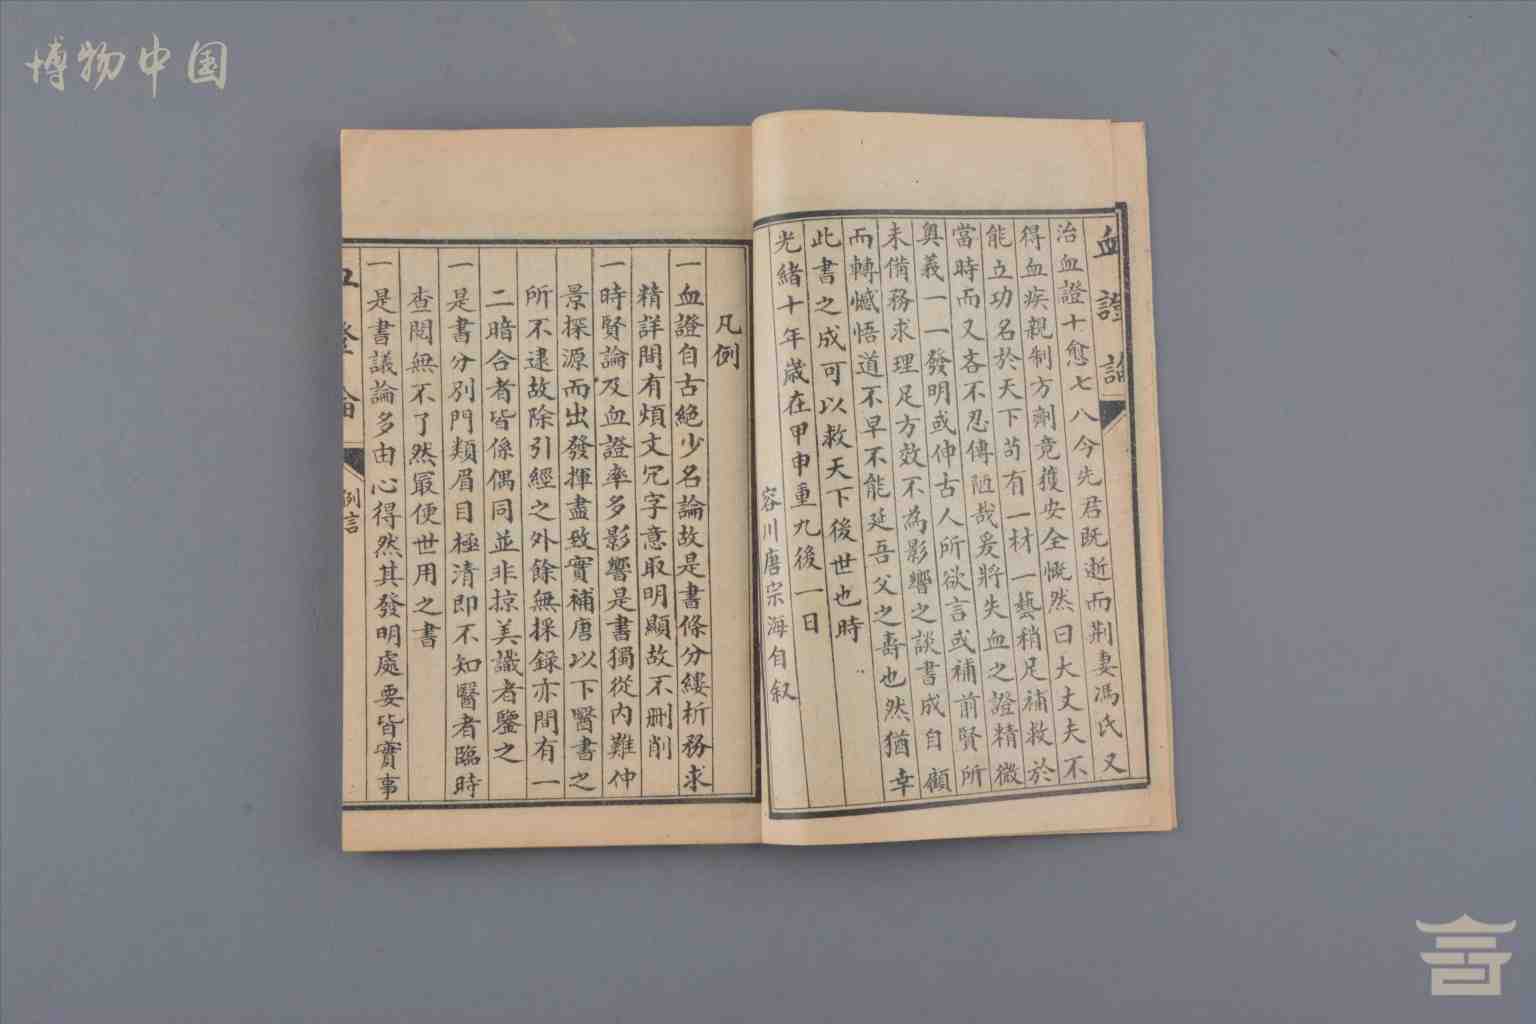 博物中国
血證論
治血證十愈七八今先君既逝而荆妻馮氏又
得血疾親制方劑竟獲安全慨然曰大丈夫不
能立功名於天下苟有一材一藝稍足補救於
當時而又吝不忍傳陋哉爰將失血之證精微
奧義一一發明或伸古人所欲言或補前賢所
未備務求理足方效不為影響之談書成自顧
而轉憾悟道不早不能延吾父之壽也然猶幸
此書之成可以救天下後世也時
光緒十年歲在甲申重九後一日
容川唐宗海自叙
凡例
一血證自古絶少名論故是書條分縷析務求
精詳間有煩文冗字意取明顯故不删削
一時賢論及血證率多影響是書獨從内難仲
景探源而出發揮盡致實補唐以下醫書之
所不逮故除引經之外餘無採録亦間有一
二暗合者皆係偶同並非掠美識者鑒之
一是書分别門類眉目極清即不知醫者臨時
查閲無不了然最便世用之書
一是書議論多由心得然其發明處要皆實事
血證論
例言